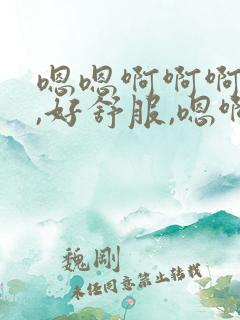 嗯嗯啊啊啊
,好舒服,嗯啊
魏刚
未经同意禁止转载